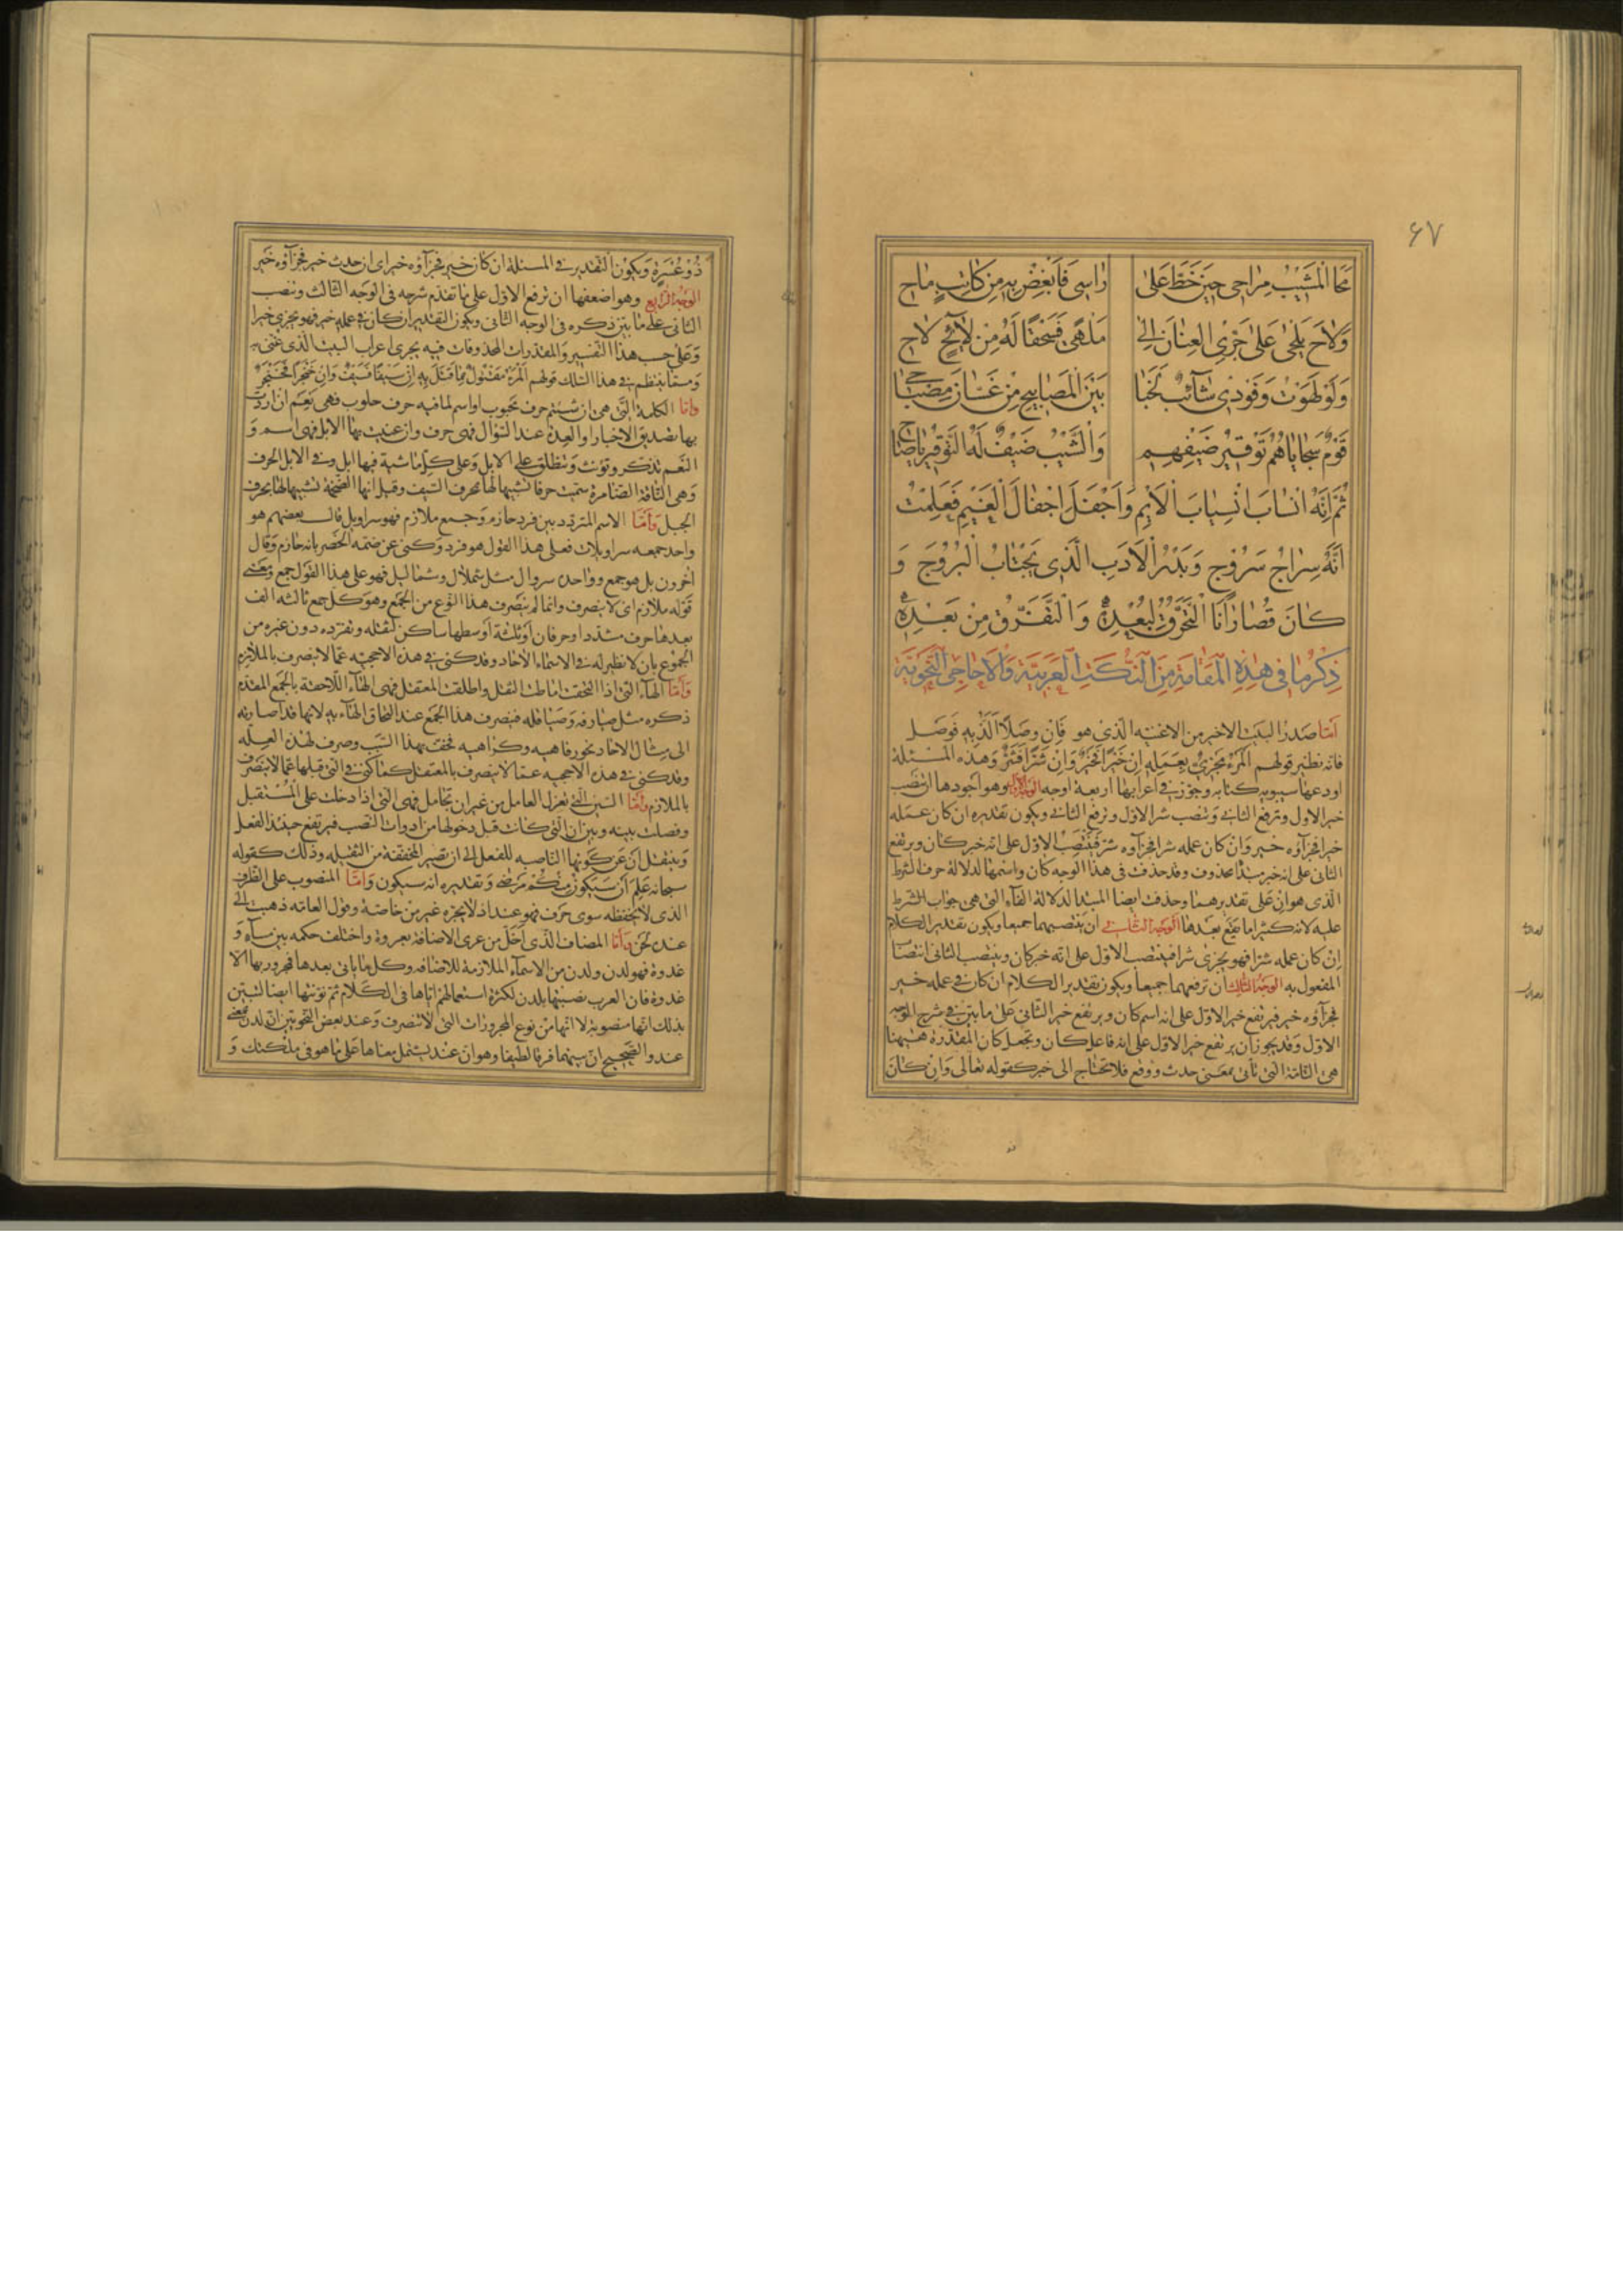 ۶۷
مَحَا الْمَشَيْبُ مِرَاحِى حِيَنَ خَطَّ عَلىٰ رَاسِى فَاَبْغِضْ بِهِ مِنْ كَاتِبٍ مَاحِ
وَلَاحَ يَلْحىٰ عَلىٰ جَرْىِ العِنَانِ اِلىٰ مَلْهًى فَسُحْقًا لَهُ مِنْ لَائِحٍ لَاحِ
وَلَوْ لَهَوْتُ وَفَوْدِى شَائِبٌ لَخَبَا بَيْنَ الْمَصَابِيحِ مِنْ غَسَّانَ مِصْبَاحِى
قَوْمٌ سَجَايَاهُمْ تَوْقِيْرُ ضَيْفِهِمِ وَالْشَّيْبُ ضَيْفٌ لَهُ التَّوْقِيْرُ يَاصَاحِ
ثُمَّ اِنَّهُ انْسَابَ انْسِيَابَ الْاَيْمِ وَاَجْفَلَ اِجْفَالَ الْغَيْمِ فَعَلِمْتُ
اَنَّهُ سِرَاجُ سَرُوْجَ وَبَدْرُ الْاَدَبِ الَّذِى يَجْتَابُ الْبُرُوْجَ وَ
كَانَ قُصَارَانَا الْتَّحَرُّقَ لِبُعْدِهِ وَالْتَّفَرُّقَ مِنْ بَعْدِهِ
ذِكْرُ مَا فِى هٰذِهِ الْمَقَامَةِ مِنَ الْنُّكَتِ الْعَرَبِيَّةِ وَالْاَحَاجِى الْنَّحْوِيَّةِ
اَمَّا صَدْرُ البَيْتِ الاخير من الاغنيه الّذى هو فَاِنْ وَصْلًا اَلَذُّ بِهِ فَوَصْلٌ
فانه نظير قولهم اَلمَرْءُ مَجْزِىٌّ بِعَمَلِهِ اِنْ خَيْرًا فَخَيْرٌ وَاِنْ شَرًّا فَشَرٌّ وَهذه المسْئلة
اودعها سيبويه كتابه وجوّز فى اعرابها اربعة اوجه الوجه الاول وهو اجودها ان تنصب
خير الاول وترفع الثانى وتنصب شر الاول وترفع الثانى ويكون تقديره ان كان عمله
خيرا فجزآؤه خير وان كان عمله شرا فجزآؤه شر فتنصب الاوّل على انه خبر كان ويرتفع
الثانى على انه خبر مبتدا محذوف وقد حذفت فى هذا الوجه كان واسمها لدلالة حرف الشرط
الّذى هو ان على تقديرهما وحذفت ايضا المبتدا لدلالة الفآء التى هى جواب الشرط
عليه لانه كثيرا ما يقع بعدها الوجه الثانى ان تنصبهما جميعا ويكون تقدير الكلام
اِنْ كان عمله شرا فهو يجزى شرا فينتصب الاوّل على انه خبر كان وينتصب الثانى انتصاب
المفعول به الوجه الثالث ان ترفعهما جميعا ويكون تقدير الكلام ان كان فى عمله خير
فجزآؤه خير فيرتفع خير الاوّل على انه اسم كان ويرتفع خير الثّانى على ما بيّن فى شرح الوجه
الاوّل وقد يجوز ان يرتفع خير الاوّل على انه فاعل كان وتجعل كان المقدّرة هٰيهنا
هى التّامة التى تأتى بمعنى حدث ووقع فلا تحتاج الى خبر كقوله تعالى وَاِنْ كَانَ
ذُوْ عُسْرَةٍ وَيكون التّقدير فى المسئلة ان كان خير فجزآؤه خير اى ان حدث خير فجزآؤه خير
الوجه الرابع وهو اضعفها ان ترفع الاوّل على ما تقدّم شرحه فى الوجه الثالث وتنصب
الثانى على ما بيّن ذكره فى الوجه الثانى ويكون التقدير ان كان فى عمله خير فهو يجزى خيرا
وَعَلى حسب هذا التّفسير والمقدّرات المحذوفات فيه يجرى اعراب البيت الذى غنّى به
وَممّا ينتظم فى هذا السّلك قولهم اَلمَرْءُ مَقْتُوْلٌ بِمَا قَتَلَ بِهِ اِنْ سَيْفًا فَسَيْفٌ وَاِنْ خَنْجَرًا فَخَنْجَرٌ
وامّا الكلمة التّى هى ان شئتم حرف محبوب او اسم لما فيه حرف حلوب فهى نَعَم ان اردت
بها تصديق الاخبار او العِدَة عند السّؤال فهى حرف وان عنيت بها الابل فهى اسم وَ
النَّعم تذكّر وتؤنث وَتنطلق على الابل وَعلى كلّ ماشية فيها ابل وفى الابل الحرف
وَهى النّاقة الضّامرة سمّيت حرفا تشبيها لها بحرف السّيف وقيل انّها الضّخمة تشبيها لها بحرف
الجبل وَاَمَّا الاسم المتردد بين فرد حازم وَجمع ملازم فهو سراويل قال بعضهم هو
واحد جمعه سراويلات فعلى هذا القول هو فرد وكنى عن ضمّه الخصر بانه حازم وَقال
آخرون بل هو جمع وواحده سروال مثل شملال وشماليل فهو على هذا القول جمع ومعنى
قوله ملازم اى لا ينصرف وانما لم ينصرف هذا النّوع من الجَمع وهو كل جمع ثالثه الف
بعدها حرف مشدد او حرفان اوْ ثلثة اوسطها ساكن لثقله وتفرّده دون غيره من
الجموع بان لا نظير له فى الاسمآء الآحاد وقد كنى فى هذه الاحجيه عمّا لا ينصرف بالملازم
وَاَمَّا الهآء التى اذا التحقت اماطت الثقل واطلقت المعتقل فهى الهآء اللّاحقة بالجَمع المقدّم
ذكره مثل صيارفه وَصياقله فينصرف هذا الجَمع عند التحاق الهآء به لانها قد اصارته
الى مثال الآحاد نحو رفاهيه وكراهيه فخفّ بهذا السّبب وصرف لهذه العلّه
وقد كنى فى هذه الاحجيه عمّا لا ينصرف بالمعتقل كما كنى فى التى قبلها عمّا لا ينصرف
بالملازم وَامّا السّين التى تعزل العامل من غير ان تجامل فهى التى اذا دخلت على المُسْتقبل
وفصلت بينه وبين ان التى كانت قبل دخولها من ادوات النصب فيرتفع حينئذ الفعل
وَينتقل اَنْ عن كونها الناصبه للفعل الى ان تصير المخففة من الثقيله وذلك كقوله
سبحانه عَلِمَ اَنْ سَيَكُوْنُ مِنْكُمْ مَرْضىٰ وَتقديره انه سيكون وَامّا المنصوب على الظرف
الذى لا يخفظه سوى حَرف فهو عند اذ لا يجرّه غير من خاصّة وقول العامّه ذهبت الى
عنده لحن وَامّا المضاف الذى اخلّ من عرى الاضافة بعروة واختلف حكمه بين مسآء وَ
غدوة فهو لدن ولدن من الاسمآء الملازمة للاضافه وكل ما ياتى بعدها مجرور بها الّا
غدوة فان العرب نصبتها بلدن لكثرة استعمالهم ايّاها فى الكلام ثم نوّنتها ايضا ليتبيّن
بذلك انّها منصوبة لا انّها من نوع المجرورات التى لا تنصرف وَعند بعض النحويّين انّ لدن بمعنى
عند والصّحيح انّ بينهما فرقا لطيفا وهو ان عند يشتمل معناها على ما هو فى ملكتك وَ